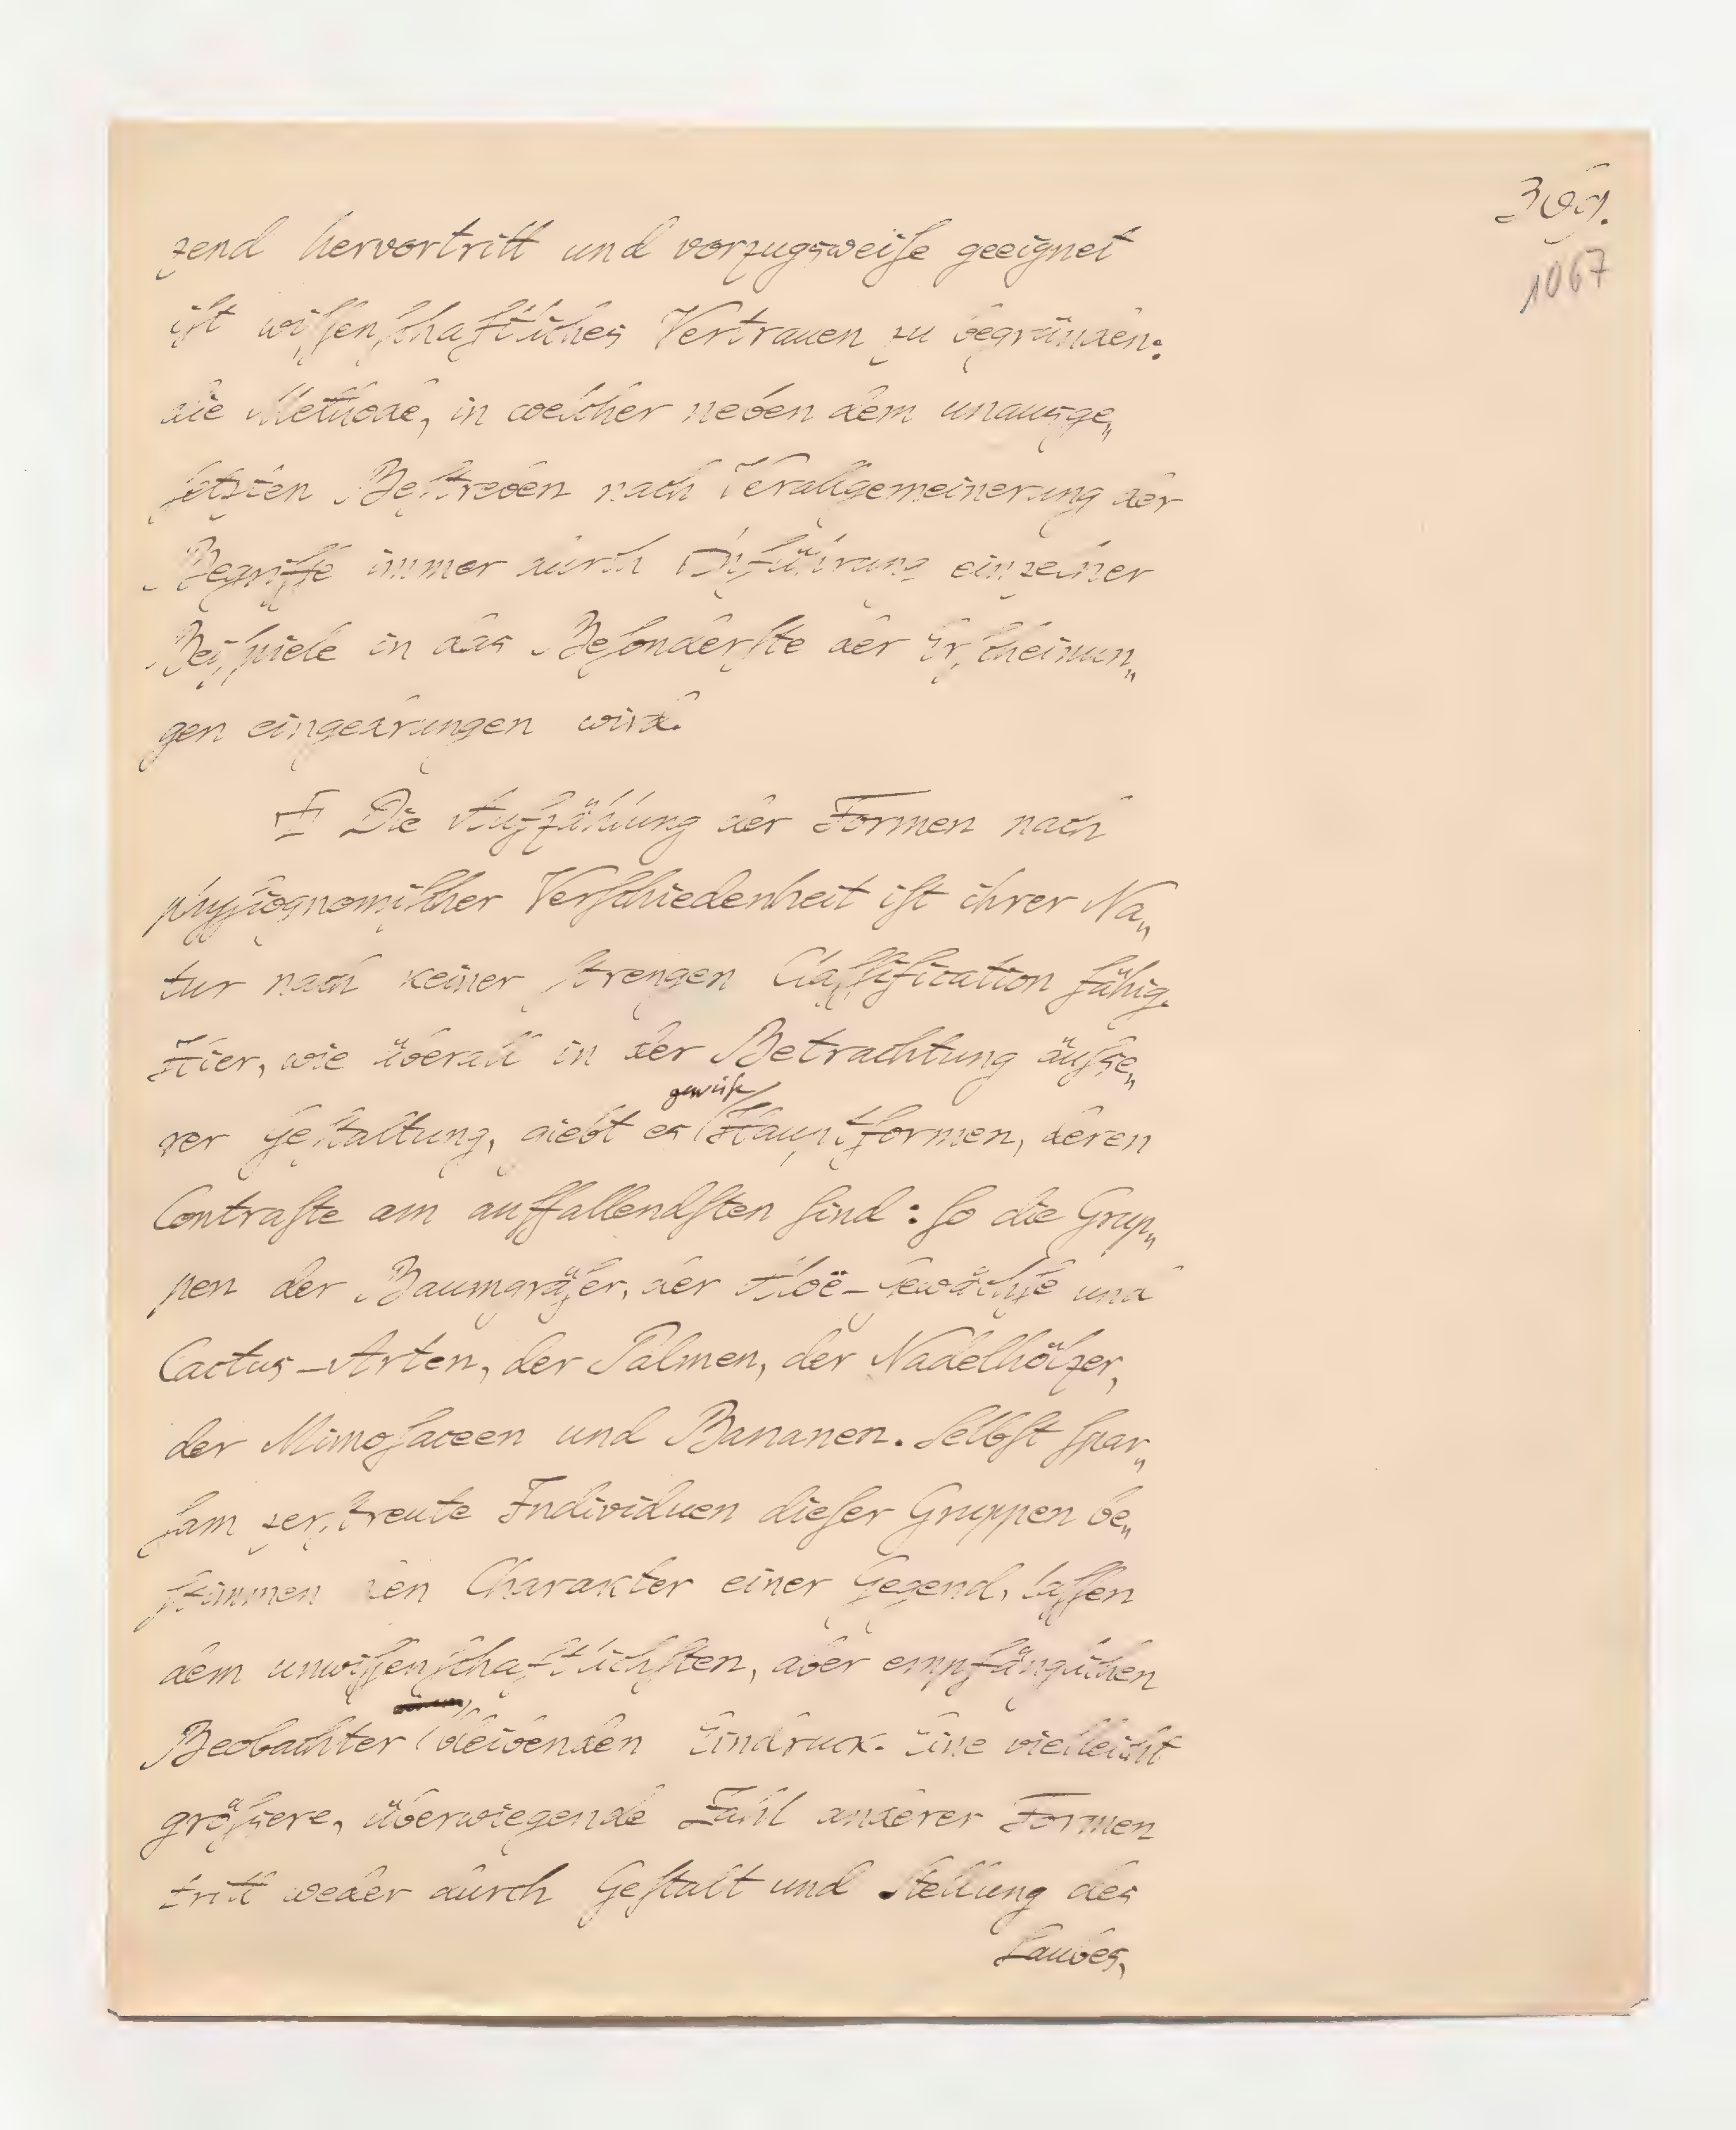 309.
1067
zend hervortritt und vorzugsweiſe geeignet
iſt wiſſenſchaftliches Vertrauen zu begründen:
die Methode, in welcher neben dem unausge„
ſetzten Beſtreben nach Verallgemeinerung der
Begriffe immer durch Anführung einzelner
Beiſpiele in das Beſonderſte der Erſcheinun„
gen eingedrungen wird.
Die Aufzählung der Formen nach
phyſiognomiſcher Verſchiedenheit iſt ihrer Na„
tur nach keiner ſtrengen Claſſification fähig.
Hier, wie überall in der Betrachtung äuſse„
gewiſſe
rer Geſtaltung, giebt es Hauptformen, deren
Contraſte am auffallendſten ſind: ſo die Grup„
pen der Baumgräſer, der Aloë-Gewächſe und
Cactus-Arten, der Palmen, der Nadelhölzer,
der Mimoſaceen und Bananen. Selbſt ſpar„
ſam zerſtreute Individuen dieſer Gruppen be„
ſtimmen den Charakter einer Gegend, laſſen
dem unwiſſenſchaftlichſten, aber empfänglichen
Beobachter bleibenden Eindruck. Eine vielleicht
gröſsere, überwiegende Zahl anderer Formen
tritt weder durch Geſtalt und Stellung des
Laubes,